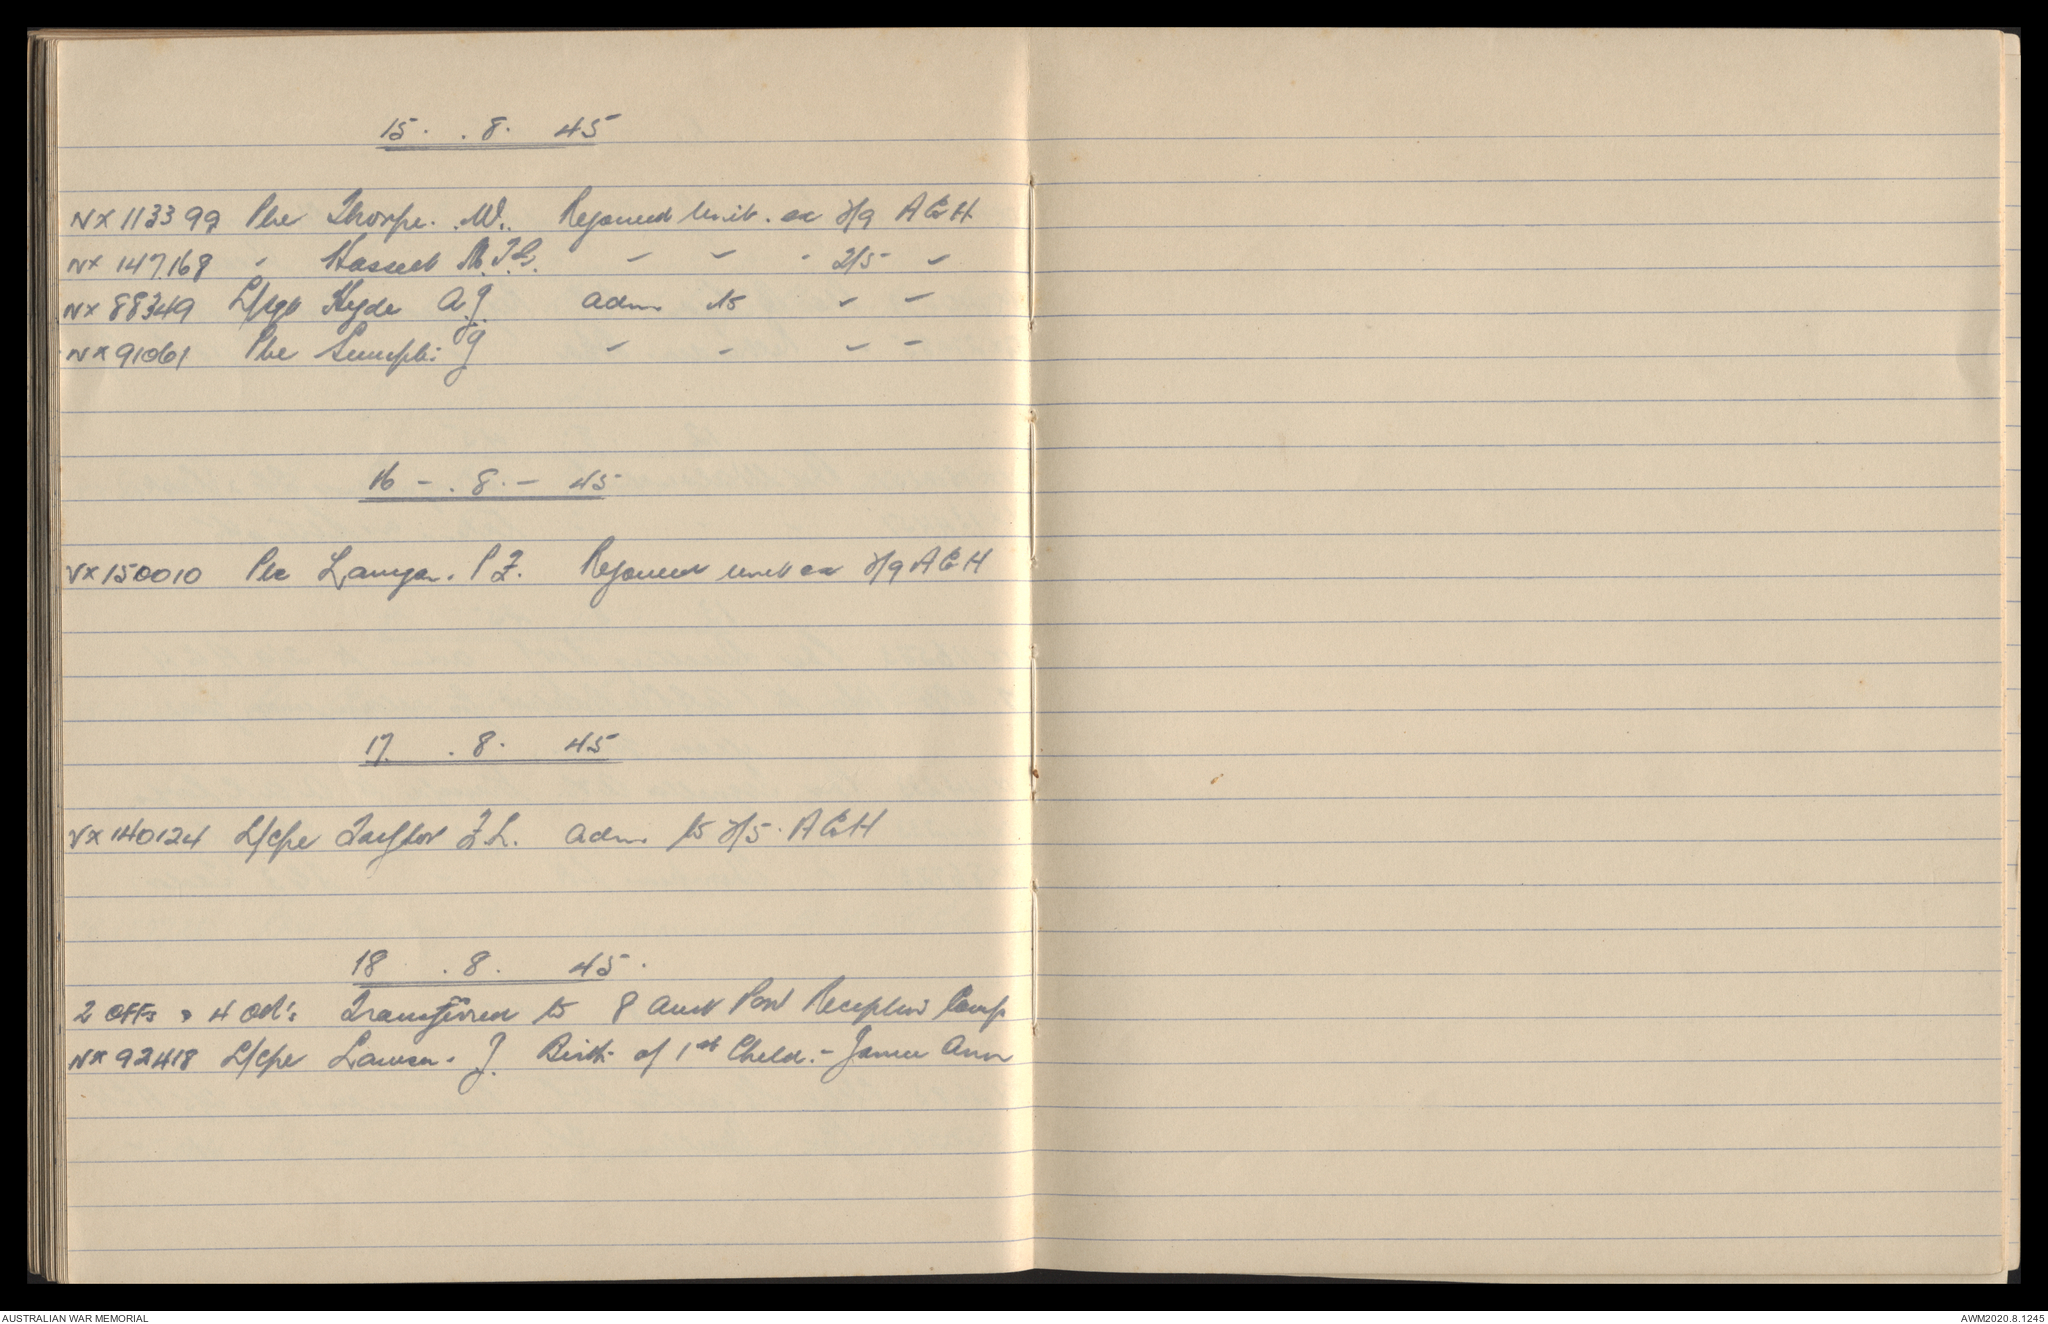 15 . . 8 . 45
NX 113399 Pte Thorpe. W. Rejoined Unit. ex 2/9 AGH
NX 147168 " Hassett M.T.G. - - - 2/5 -
NX 88349 L/Sgt Hyde A.J. adm to - -
NX 91061 Pte J - - - -
16 - . 8 . - 45
VX 150010 Pte Langan. P F. Rejoined unit ex 2/9 AGH
17. . 8 . 45
VX 140124 L/Cpl Taylor F.L. adm to 2/5. AGH
18 . 8 . 45 .
2 OFFs & 4 OR's Transferred to 8 Aust PoW Reception Camp
NX 92418 L/Cpl Lawson. J. Birth of 1st Child. - Ann
AUSTRALIAN WAR MEMORIAL
AWM2020.8.1245